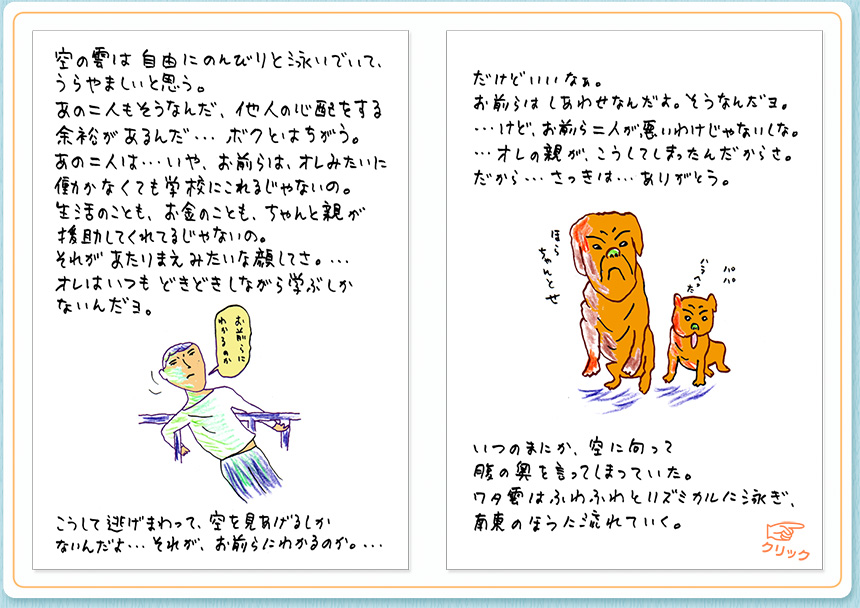 空の雲は自由にのんびりと泳いでいて、
うらやましいと思う。
あの二人もそうなんだ、他人の心配をする
余裕があるんだ… ボクとはちがう。
あの二人は…いや、お前らは、オレみたいに
働かなくても学校にこれるじゃないの。
生活のことも、お金のことも、ちゃんと親が
援助してくれてるじゃないの。
それがあたりまえみたいな顔してさ。…
オレはいつもどきどきしながら学ぶしか
ないんだヨ。
お前らに
わかるのか
こうして逃げまわって、空を見あげるしか
ないんだよ…それが、お前らにわかるのか。…
だけどいいなぁ。
お前らはしあわせなんだよ。そうなんだヨ。
…けど、お前ら二人が悪いわけじゃないしな。
…オレの親が、こうしてしまったんだからさ。
だから…さっきは…ありがとう。
ほら
ちゃんとせ
パパ
ハラへった
いつのまにか、空に向って
腹の奥を言ってしまっていた。
ワタ雲はふわふわとリズミカルに泳ぎ、
南東のほうに流れていく。
クリック